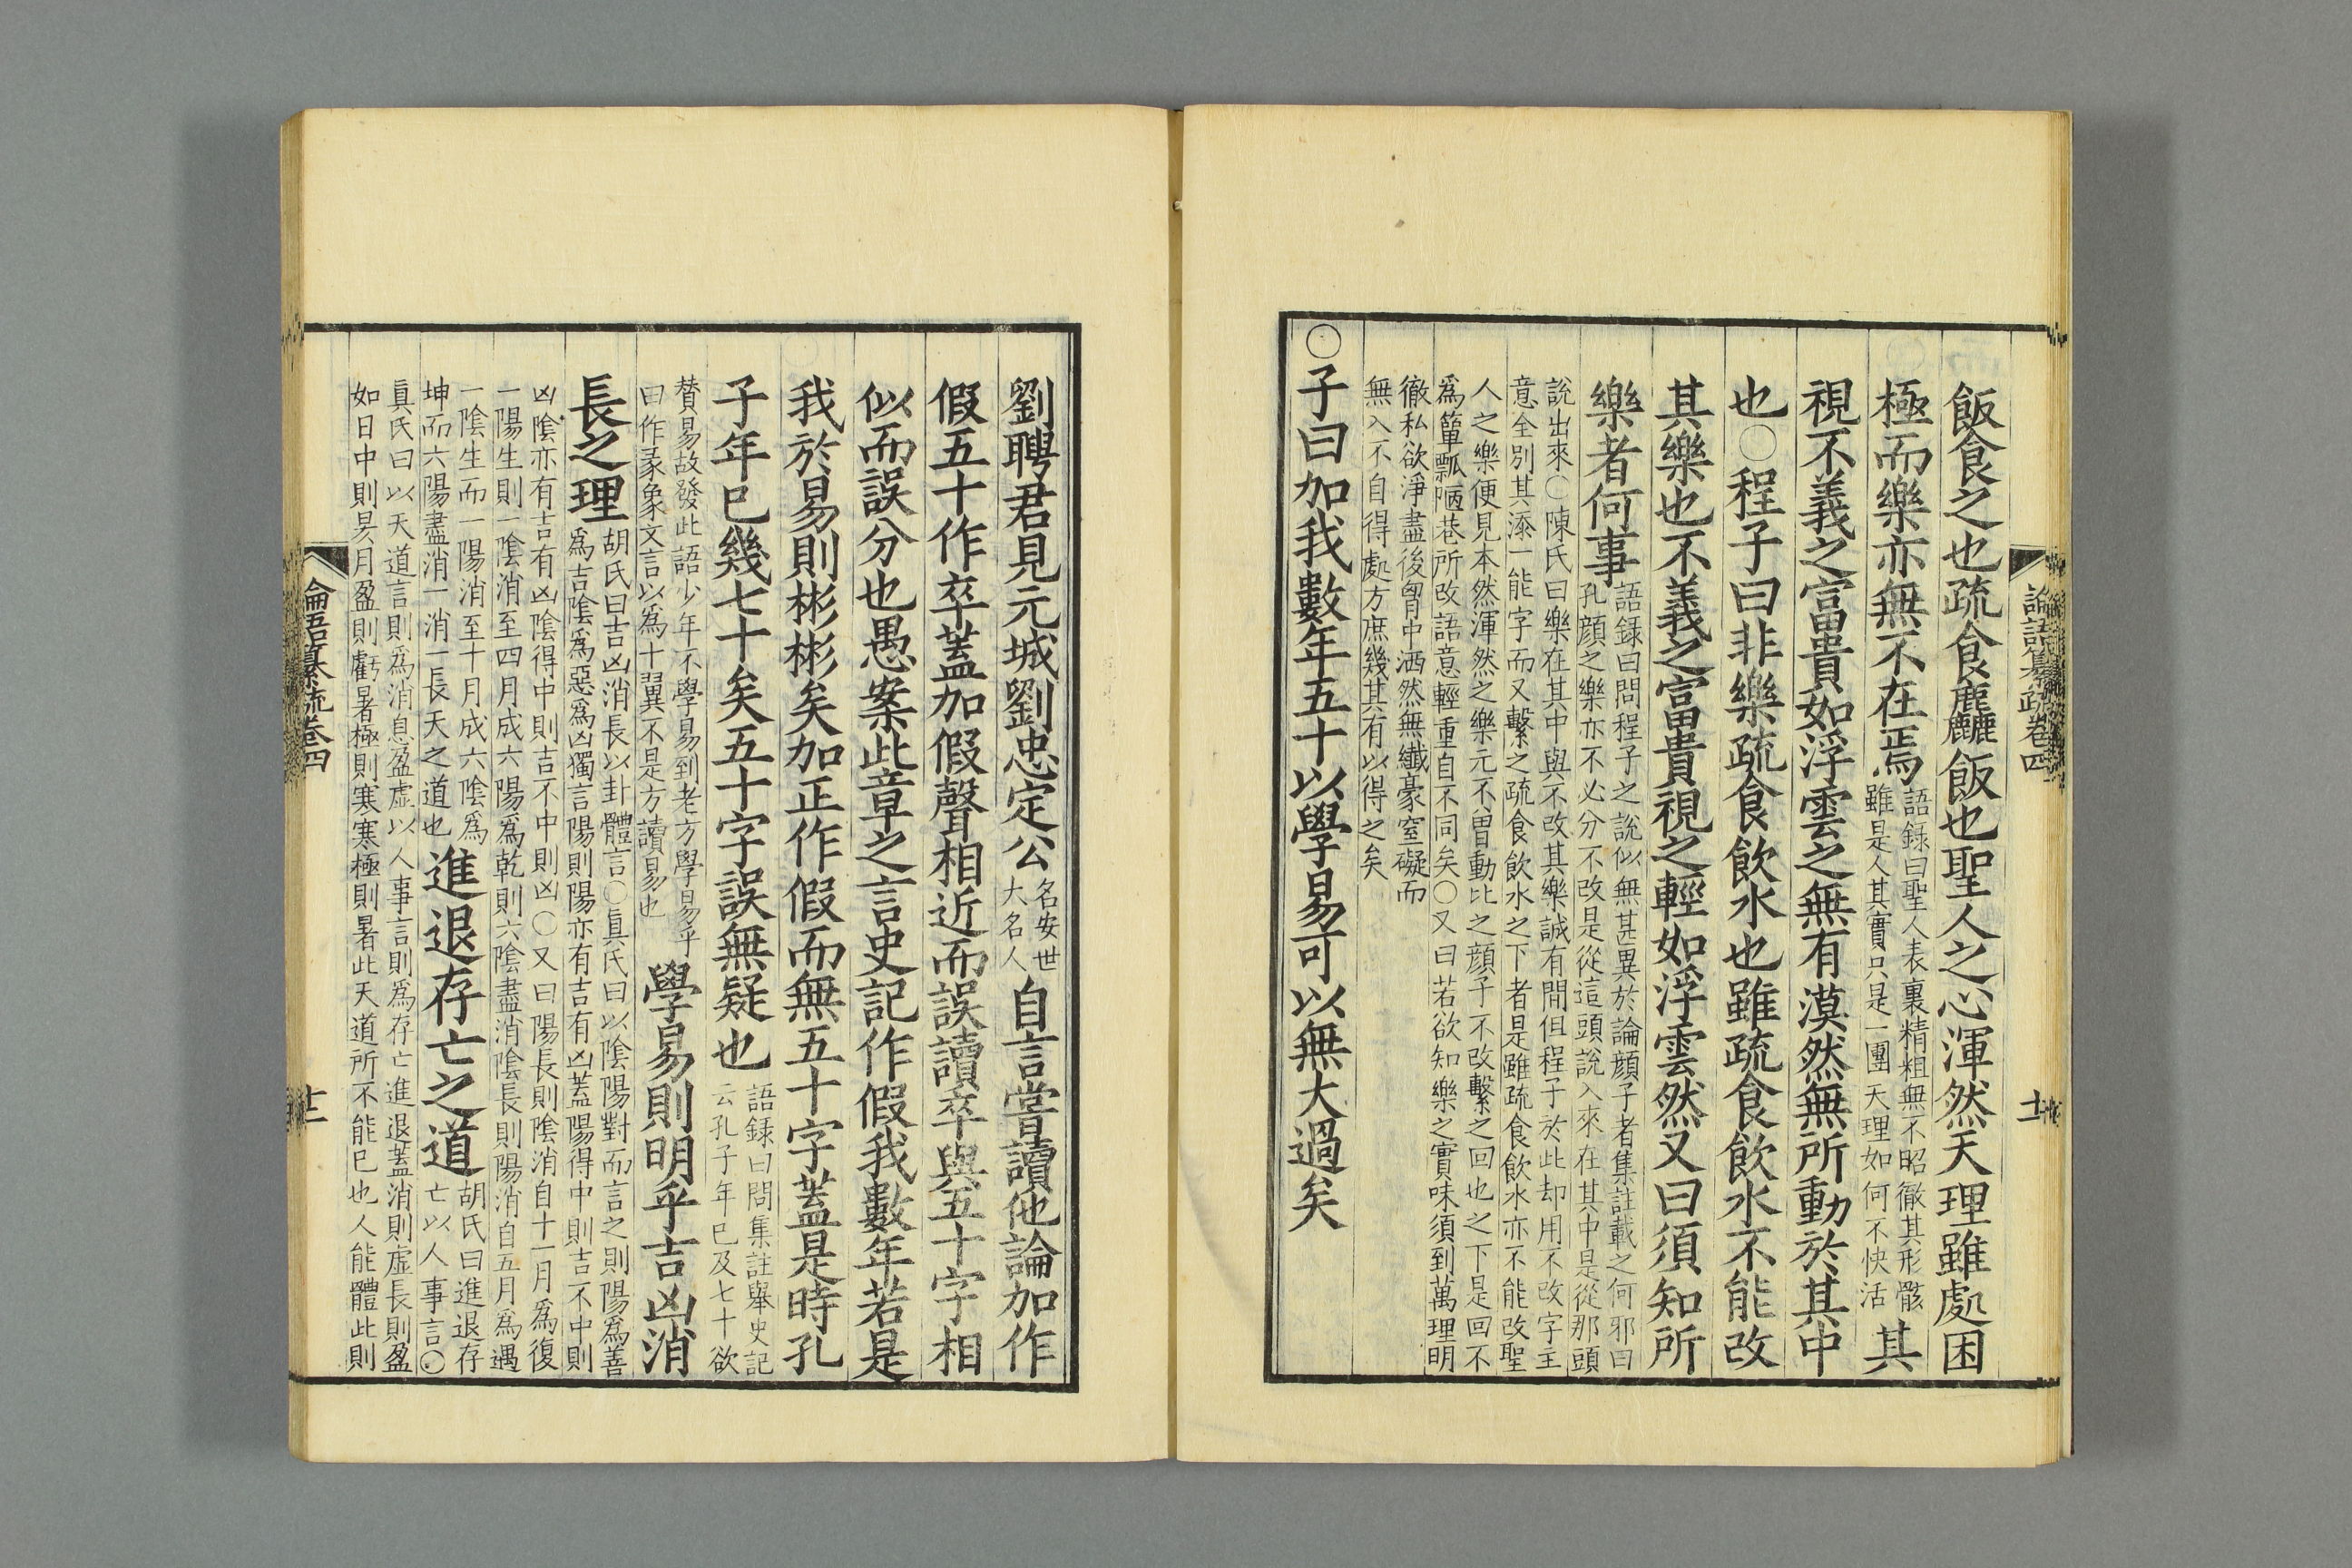 論語纂疏卷四 十一
飯食之也疏食麤飯也聖人之心渾然天理雖處困
極而樂亦無不在焉語録曰聖人表裏精粗無不昭徹其形骸雖是人其實只是一團天理如何不快活其
視不義之富貴如浮雲之無有漠然無所動於其中
也○程子曰非樂疏食飲水也雖疏食飲水不能改
其樂也不義之富貴視之輕如浮雲然又曰須知所
樂者何事語録曰問程子之說似無甚異於論顔子者集註載之何邪曰孔顔之樂亦不必分不改是從這頭說入來在其中是從那頭
說出來○陳氏曰樂在其中與不改其樂誠有間但程子於此却用不改字主
意全别其添一能字而又繫之疏食飲水之下者是雖疏食飲水亦不能改聖
人之樂便見本然渾然之樂元不曽動比之顔子不改繫之回也之下是回不
爲簞瓢陋巷所改語意輕重自不同矣○又曰若欲知樂之實味須到萬理明
徹私欲淨盡後胷中洒然無纎豪窒礙而
無入不自得處方庶幾其有以得之矣
○子曰加我數年五十以學易可以無大過矣
劉聘君見元城劉忠定公名安世大名人自言嘗讀他論加作
假五十作卒蓋加假聲相近而誤讀卒與五十字相
似而誤分也愚案此章之言史記作假我數年若是
我於易則彬彬矣加正作假而無五十字蓋是時孔
子年已幾七十矣五十字誤無疑也語録曰問集註舉史記云孔子年已及七十欲
賛易故發此語少年不學易到老方學易乎曰作彖象文言以爲十翼不是方讀易也學易則明乎吉凶消
長之理胡氏曰吉凶消長以卦體言○真氏曰以陰陽對而言之則陽爲善爲吉陰爲惡爲凶獨言陽則陽亦有吉有凶蓋陽得中則吉不中則
凶陰亦有吉有凶陰得中則吉不中則凶○又曰陽長則陰消自十一月爲復
一陽生則一陰消至四月成六陽爲乾則六陰盡消陰長則陽消自五月爲遇
一陰生而一陽消至十月成六陰爲坤而六陽盡消一消一長天之道也進退存亡之道胡氏曰進退存亡以人事言○
真氏曰以天道言則爲消息盈虚以人事言則爲存亡進退蓋消則虚長則盈
如日中則昃月盈則虧暑極則寒寒極則暑此天道所不能已也人能體此則
論語纂疏卷四 十二